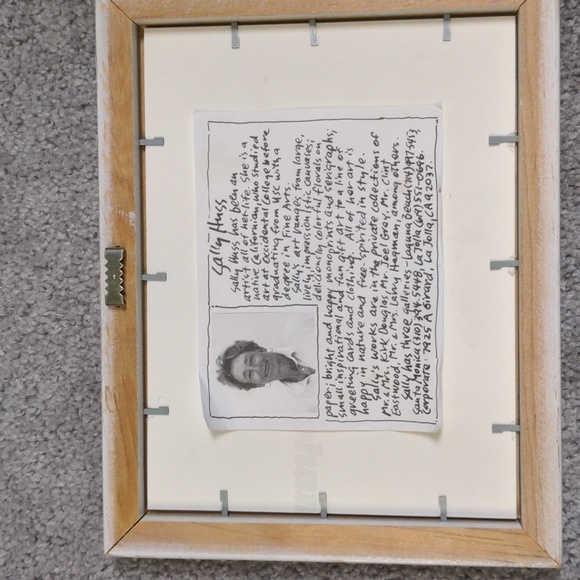 Sally Huss
Sally Huss has been an
artist all of her life. She is a
native Californian, who studied
art at Occidental College before
graduating from USC with a
degree in Fine Arts.
Sally's art ranges from large,
lively, impressionistic canvases;
deliciously colorful florals on
paper; bright and happy monoprints and serigraphs;
small inspirational and fun gift art to a line of
greeting cards and clothing. All of her art is
happy in nature and free-spirited in style.
Sally's works are in the private collections of
Mr. & Mrs. Kirk Douglas, Mr. Joel Gray, Mr. Clint
Eastwood, Mr. & Mrs. Larry Hagman, among others.
Sally has three galleries: Laguna Beach (714) 497-5153,
Santa Monica (310) 394-5448, La Jolla (619) 551-0696.
Corporate: 7925 A Girard, La Jolla, CA 92037.